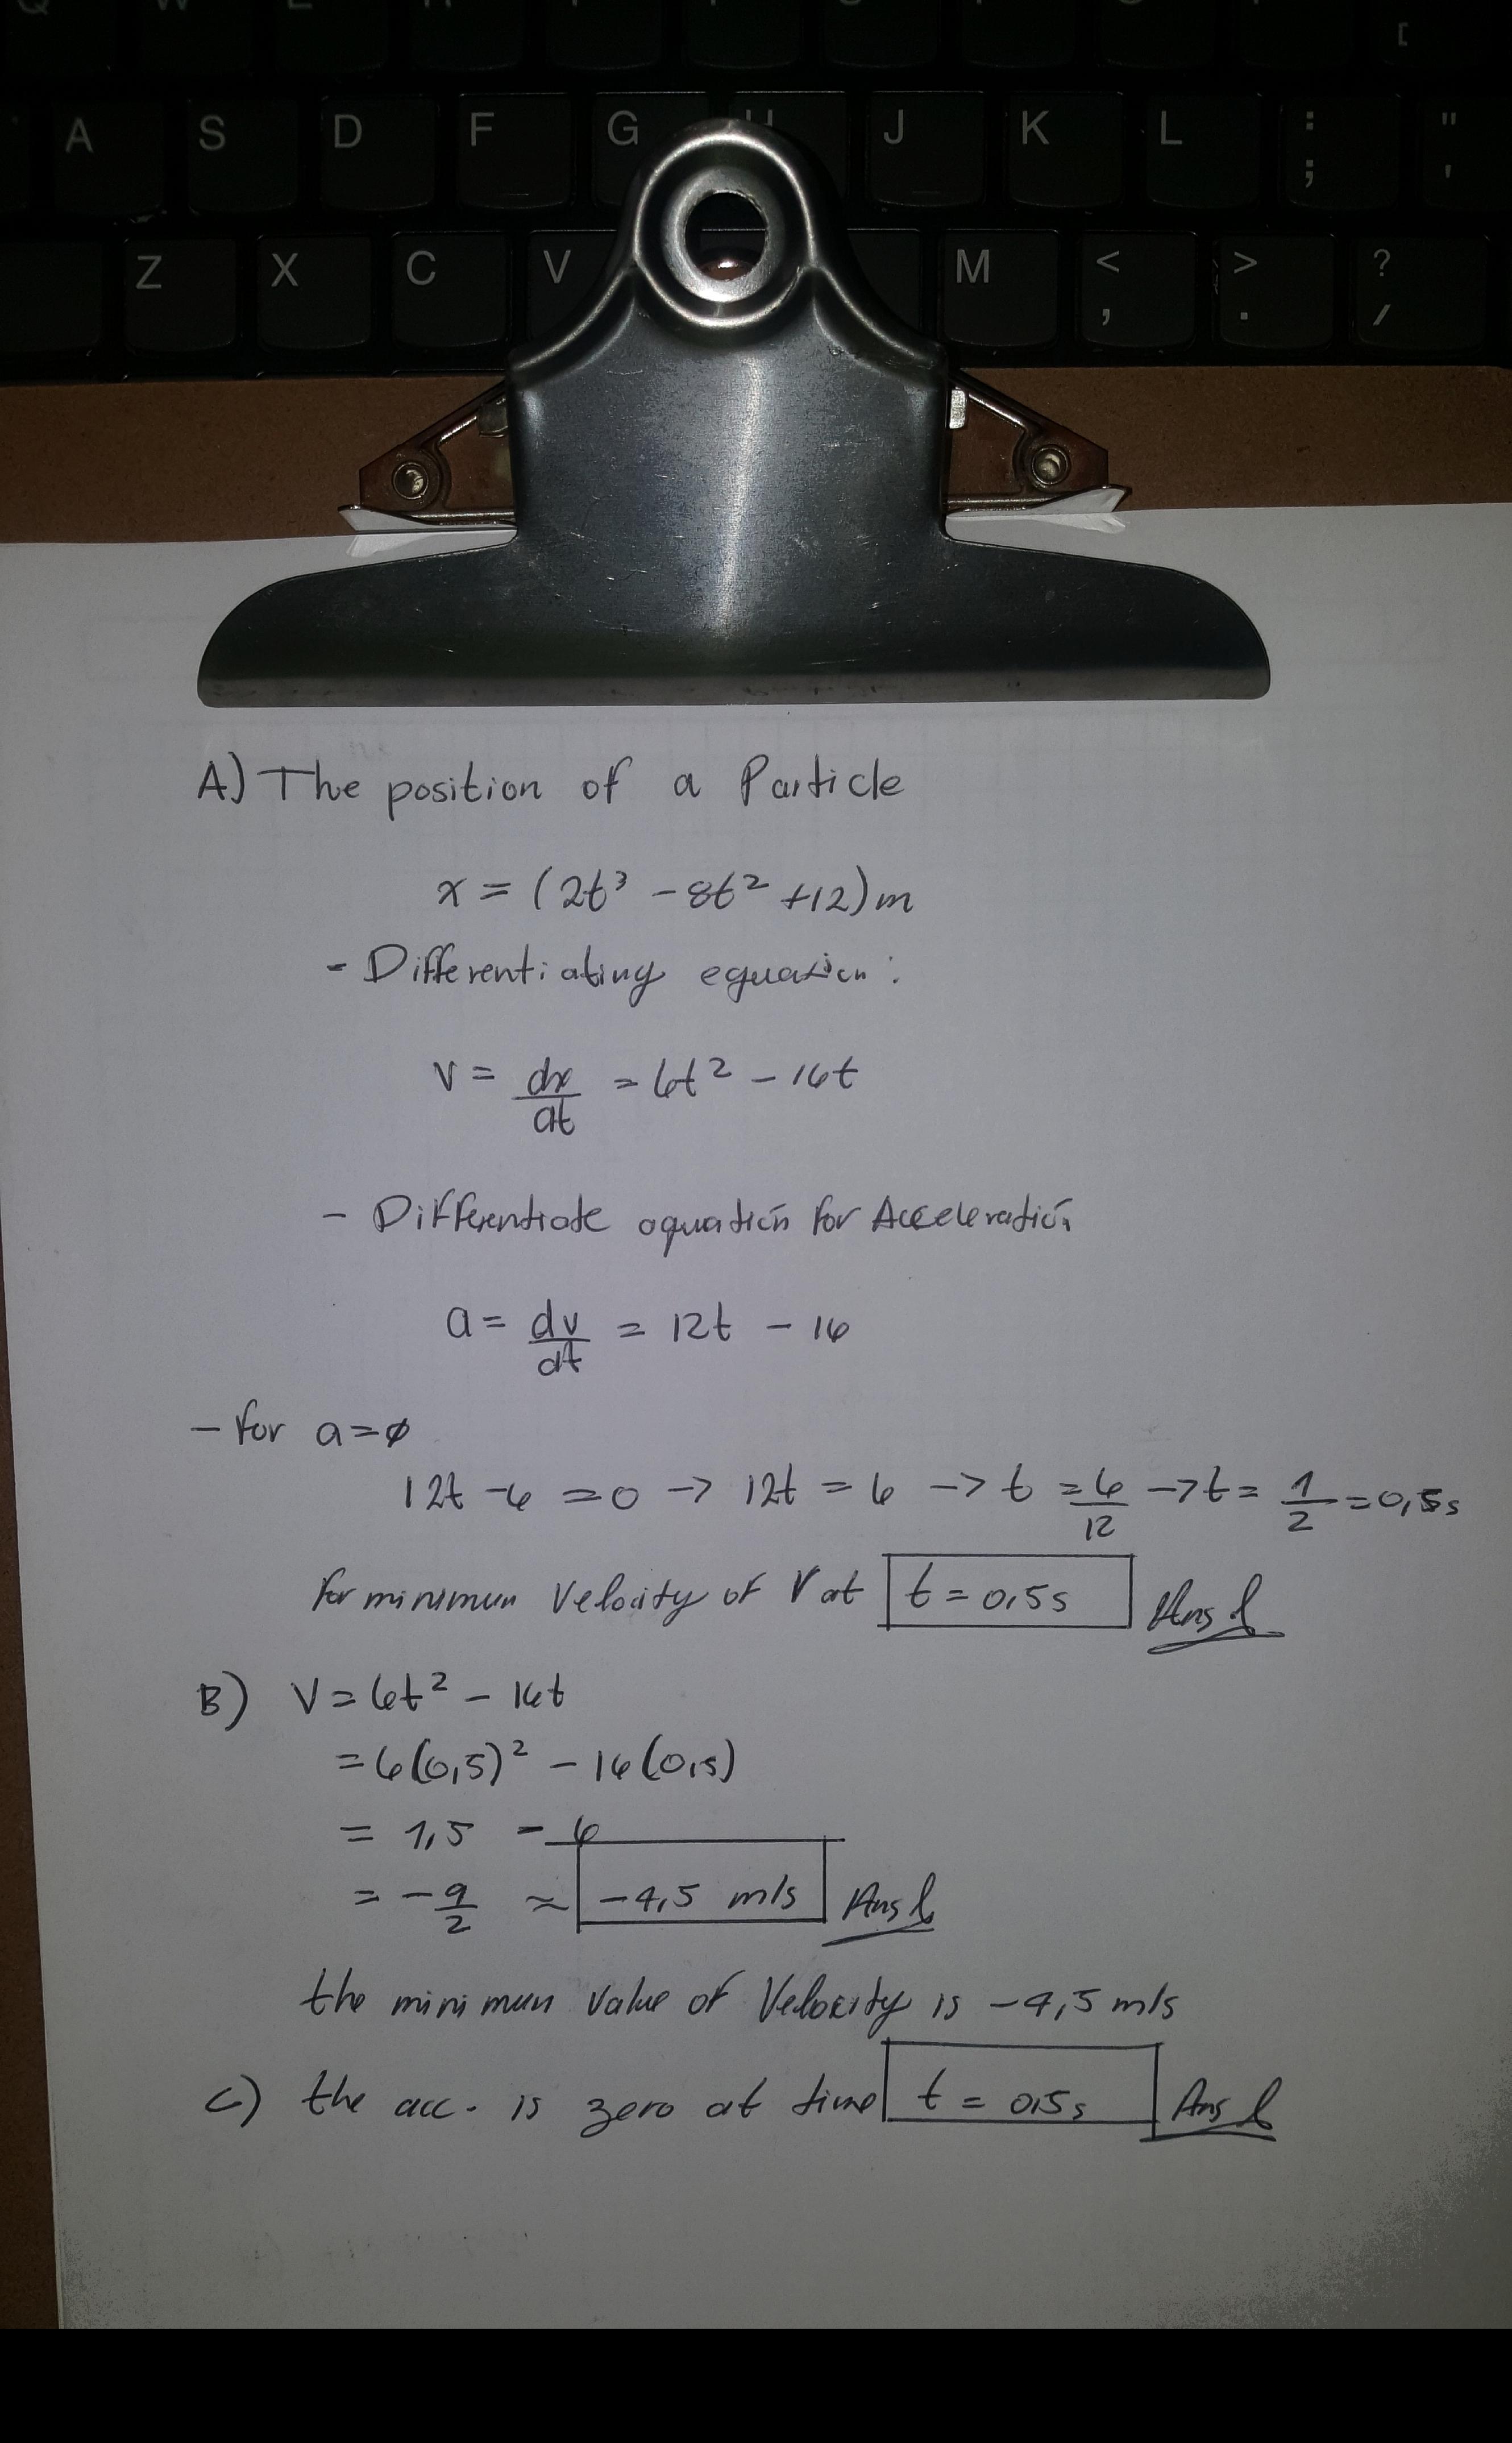 Q W E R
[
A S D F G H J K L : ; " '
Z X C V M < , > . ? /
A) The position of a Particle
x = (2t³ - 8t² + 12)m
- Differentiating equation:
v = dx/dt = 6t² - 16t
- Differentiate equation for Acceleration
a = dv/dt = 12t - 16
- for a = ∅
12t - 6 = 0 → 12t = 6 → t = 6/12 → t = 1/2 = 0,5s
for minimun Velocity of V at t = 0,5s Ans
B) V = 6t² - 16t
= 6(0,5)² - 16(0,5)
= 1,5 - 6
= -9/2 ≈ -4,5 m/s Ans
the minimun value of Velocity is -4,5 m/s
C) the acc. is zero at time t = 0,5s Ans